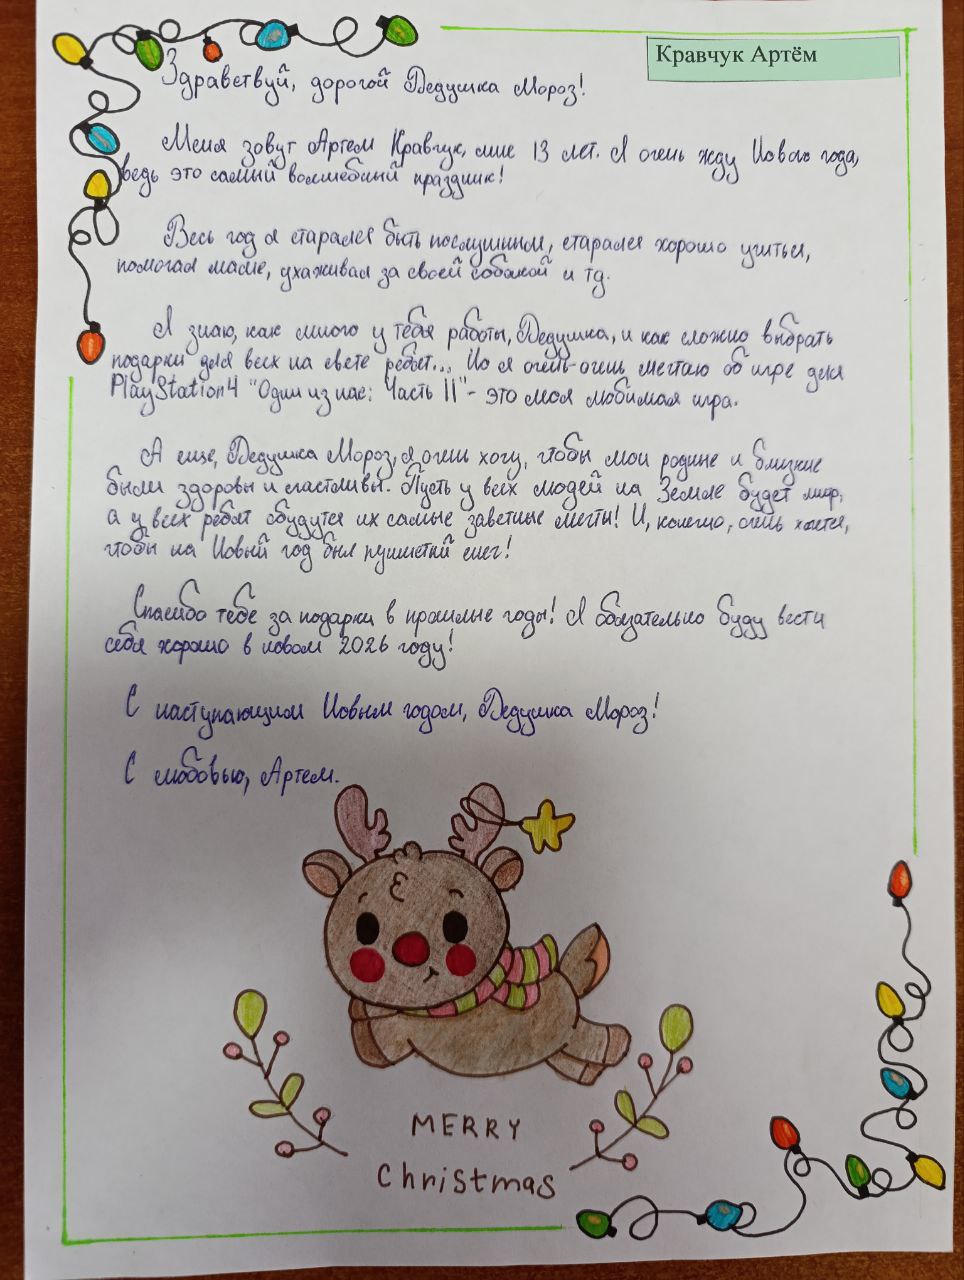 Кравчук Артём
Здравствуй, дорогой Дедушка Мороз!
Меня зовут Артем Кравчук, мне 13 лет. Я очень жду Нового года,
ведь это самый волшебный праздник!
Весь год я старался быть послушным, старался хорошо учиться,
помогал маме, ухаживал за своей собакой и тд.
Я знаю, как много у тебя работы, Дедушка, и как сложно выбрать
подарки для всех на свете ребят... Но я очень-очень мечтаю об игре для
PlayStation4 "Один из нас: Часть II" - это моя любимая игра.
А еще, Дедушка Мороз, я очень хочу, чтобы мои родные и близкие
были здоровы и счастливы. Пусть у всех людей на Земле будет мир,
а у всех ребят сбудутся их самые заветные мечты! И, конечно, очень хочется,
чтобы на Новый год был пушистый снег!
Спасибо тебе за подарки в прошлые годы! Я обязательно буду вести
себя хорошо в новом 2026 году!
С наступающим Новым годом, Дедушка Мороз!
С любовью, Артем.
MERRY
Christmas